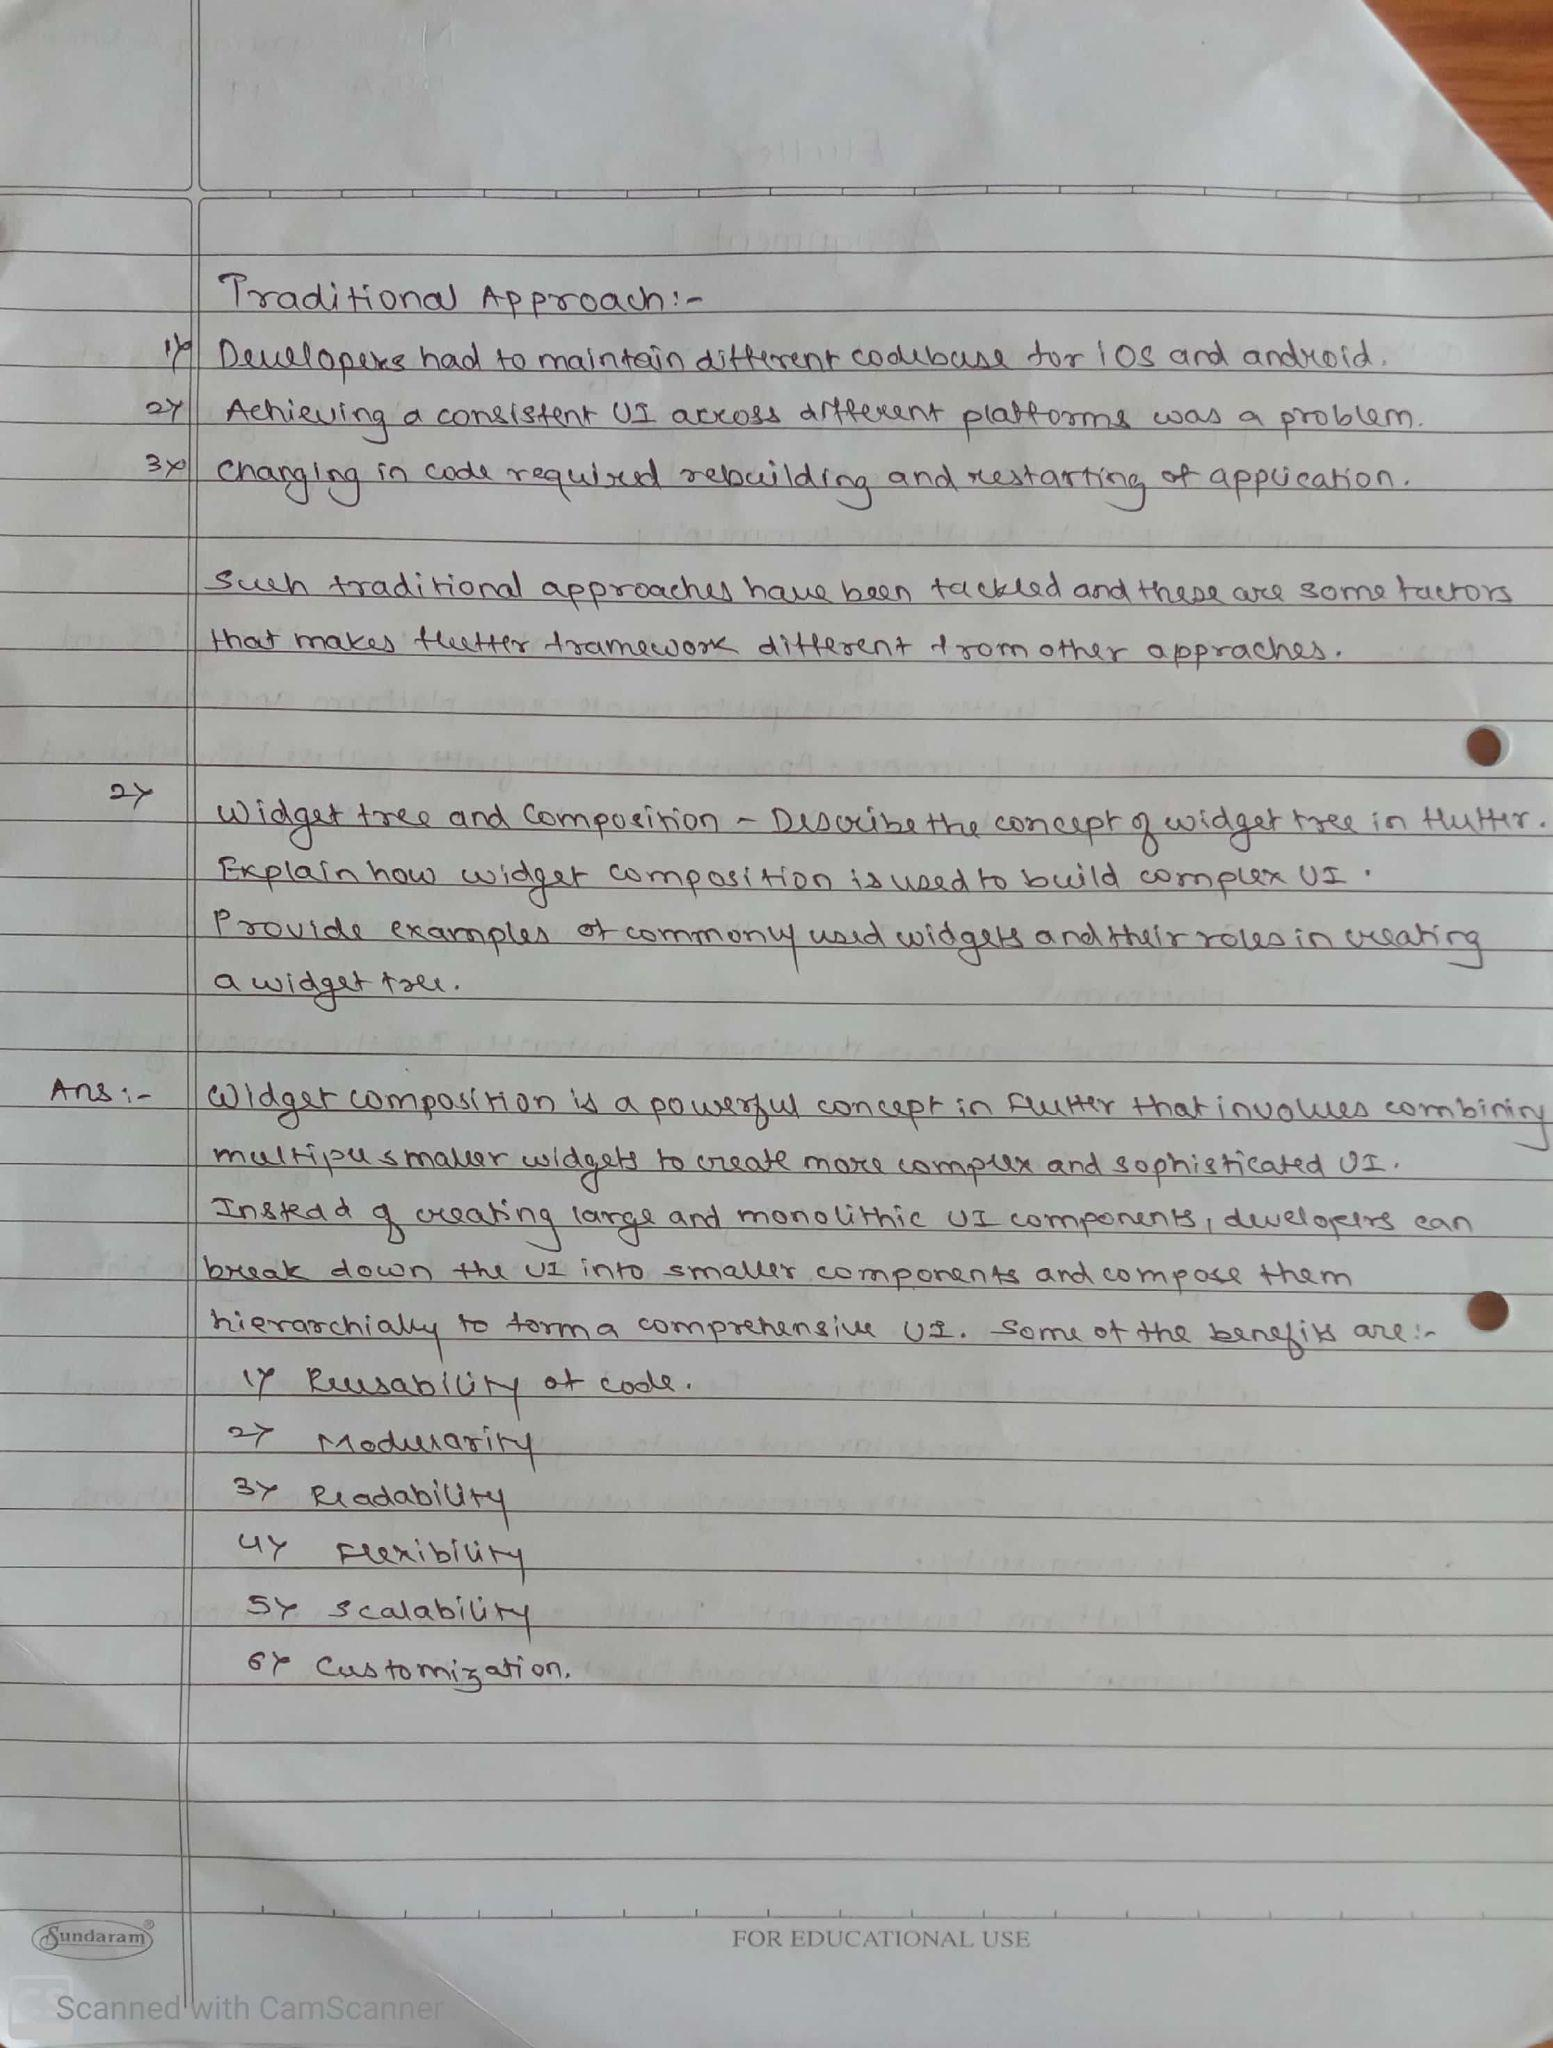 Traditional Approach:-
1) Developers had to maintain different codebase for iOS and android.
2) Achieving a consistent UI across different platforms was a problem.
3) Changing in code required rebuilding and restarting of application.
Such traditional approaches have been tackled and these are some factors
that makes flutter framework different from other appraches.
2) Widget tree and Composition - Describe the concept of widget tree in flutter.
Explain how widget composition is used to build complex UI.
Provide examples of commonly used widgets and their roles in creating
a widget tree.
Ans:- Widget composition is a powerful concept in Flutter that involves combining
multiple smaller widgets to create more complex and sophisticated UI.
Instead of creating large and monolithic UI components, developers can
break down the UI into smaller components and compose them
hierarchially to form a comprehensive UI. Some of the benefits are:-
1) Reusability of code.
2) Modularity
3) Readability
4) Flexibility
5) Scalability
6) Customization.
Sundaram®
FOR EDUCATIONAL USE
CS Scanned with CamScanner